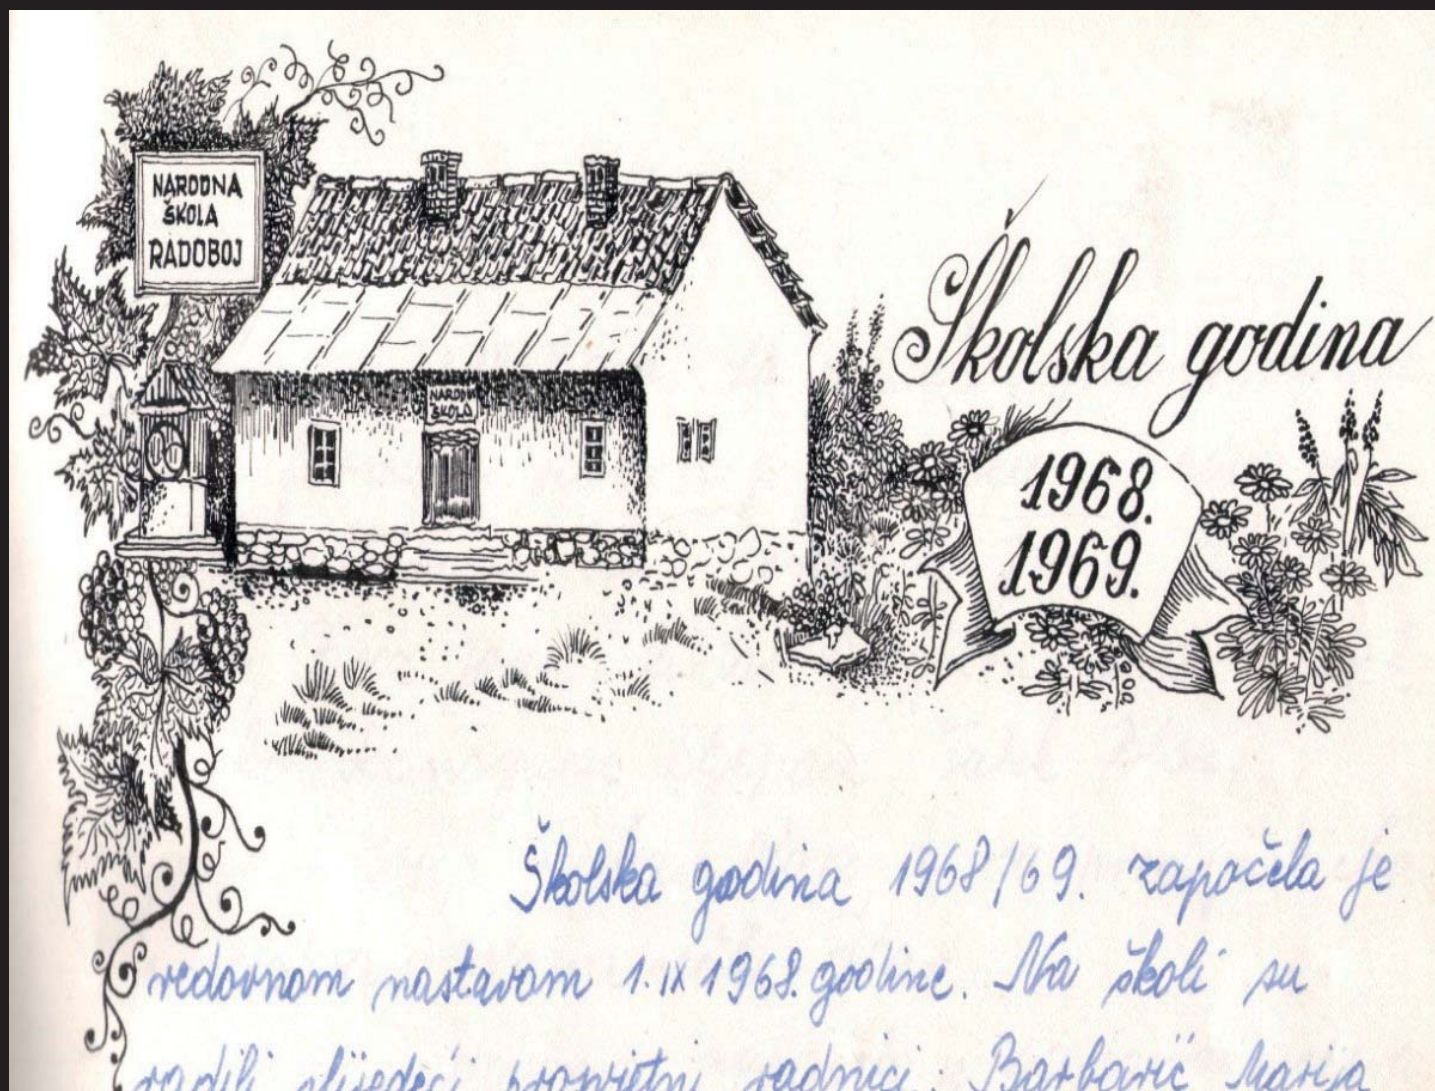 NARODNA
ŠKOLA
RADOBOJ
NARODNA
ŠKOLA
Školska godina
1968.
1969.
Školska godina 1968/69. započela je
redovnom nastavom 1. IX 1968. godine. Na školi su
radili slijedeći prosvjetni radnici: Barbarić Marija